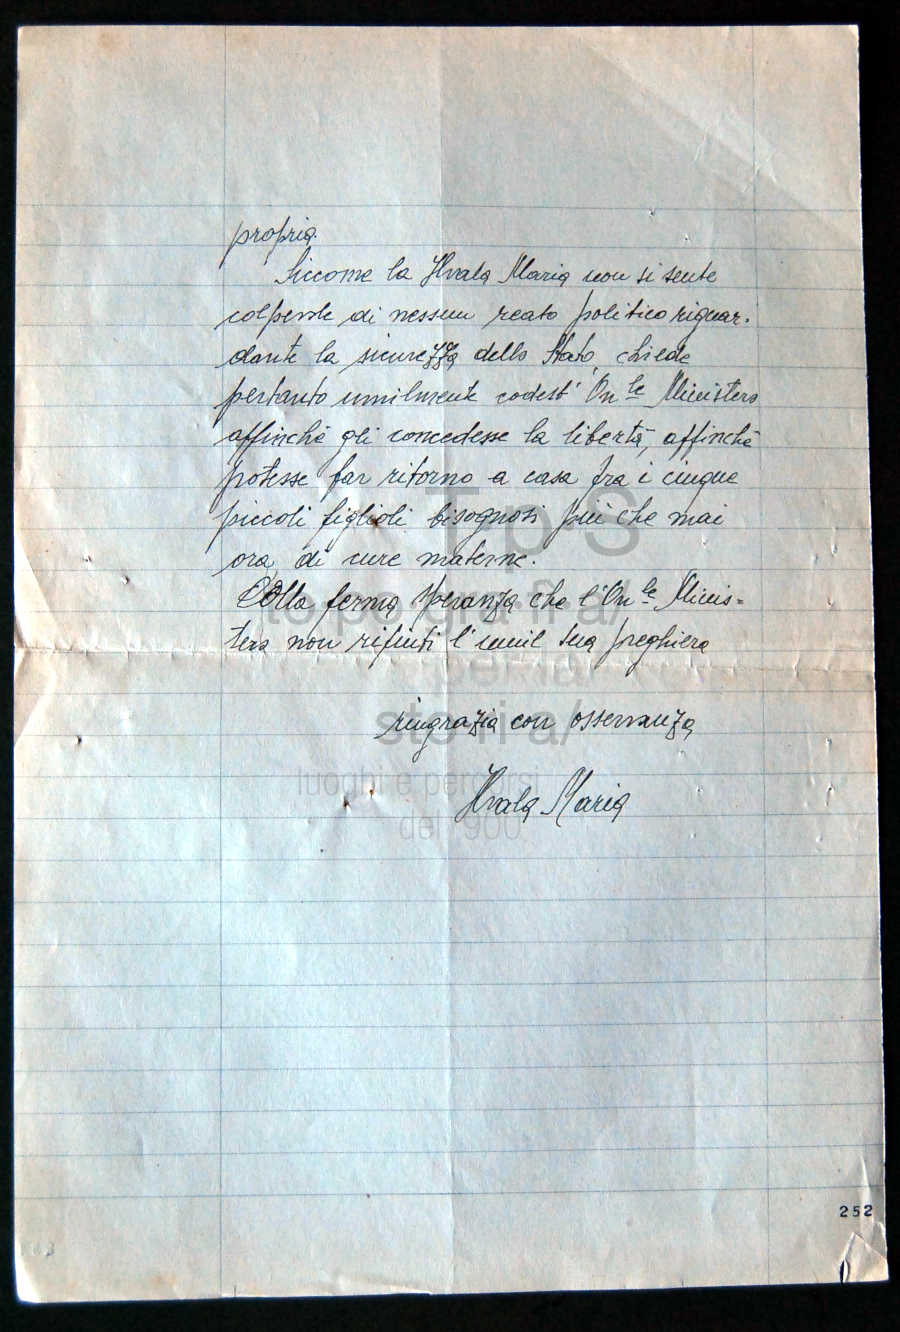 propria.
Siccome la Hvala Maria non si sente
colpevole di nessun reato politico riguar-
dante la sicurezza dello Stato, chiede
pertanto umilmente codest' On.le Ministero
affinchè gli concedesse la libertà, affinchè
potesse far ritorno a casa fra i cinque
piccoli figlioli bisognosi più che mai
ora, di cure materne.
Colla ferma speranza che l'On.le Minis=
tero non rifiuti l'umil sua preghiera
ringrazia con osservanza
Hvala Maria
TpS
to·po·gra·fi·a/
per la/
sto·ri·a/
luoghi e percorsi
del '900
252